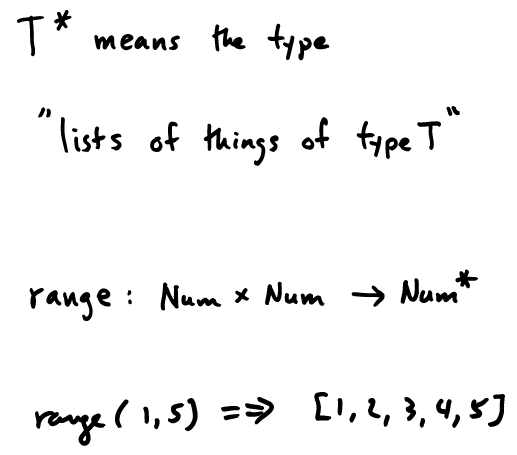 T* means the type
"lists of things of type T"
range : Num × Num → Num*
range(1,5) ==> [1,2,3,4,5]